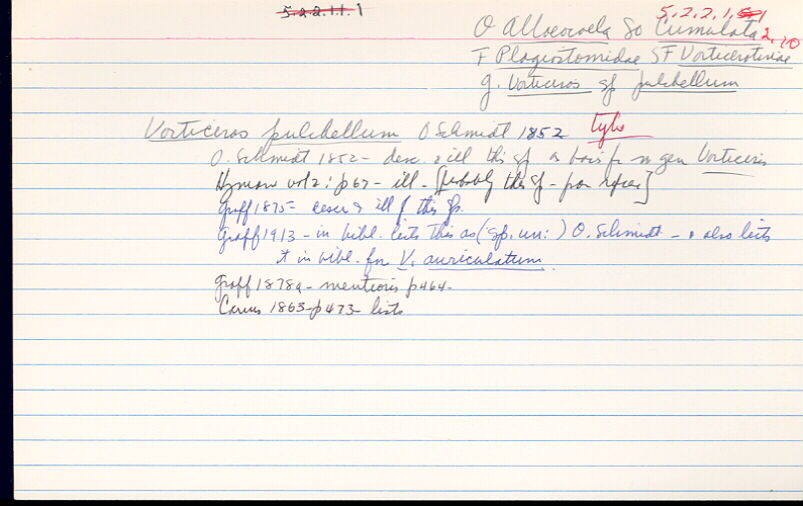 5.2.2.1.1.1
5.2.2.1.
2.10
O Alloeocoela So Cumulata
F Plagiostomidae SF Vorticerotinae
g. Vorticeros sp pulchellum
Vorticeros pulchellum O Schmidt 1852 type
O. Schmidt 1852 - desc. & ill this sp as basis for n gen Vorticeros
Hyman vol 2: p67 - ill - [probably this sp - poor
Graff 1875 - descr & ill of this sp.
Graff 1913 - in bibl. lists this as (sp. un:) O. Schmidt - & also lists
it in bibl. for V. auriculatum.
Graff 1878a - mentions p464-
Carus 1863 - p473 - lists